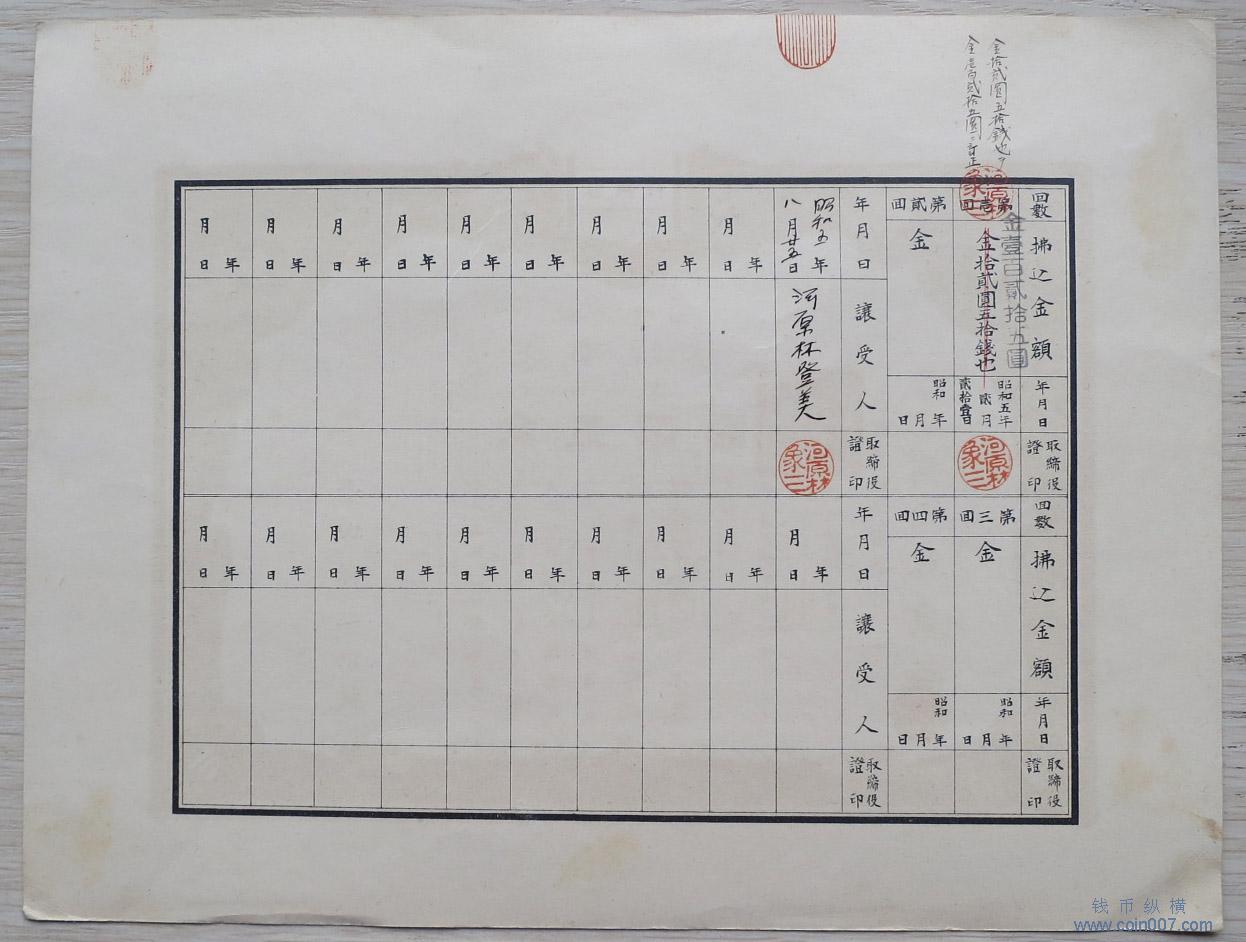 金拾貳圓五拾錢也ヲ
金壱百貳拾五圓ニ訂正
回數
拂込金額
年月日
取締役證印
第壹回
金拾貳圓五拾錢也
金壹百貳拾五圓
昭和五年貳月貳拾壹日
河原林象三
第貳回
金
昭和 年 月 日
年月日
讓受人
取締役證印
昭和五年八月廿五日
河原林登美
河原林象三
年 月 日
年 月 日
年 月 日
年 月 日
年 月 日
年 月 日
年 月 日
年 月 日
年 月 日
回數
拂込金額
年月日
取締役證印
第三回
金
昭和 年 月 日
第四回
金
昭和 年 月 日
年月日
讓受人
取締役證印
年 月 日
年 月 日
年 月 日
年 月 日
年 月 日
年 月 日
年 月 日
年 月 日
年 月 日
年 月 日
钱币纵横
www.coin007.com